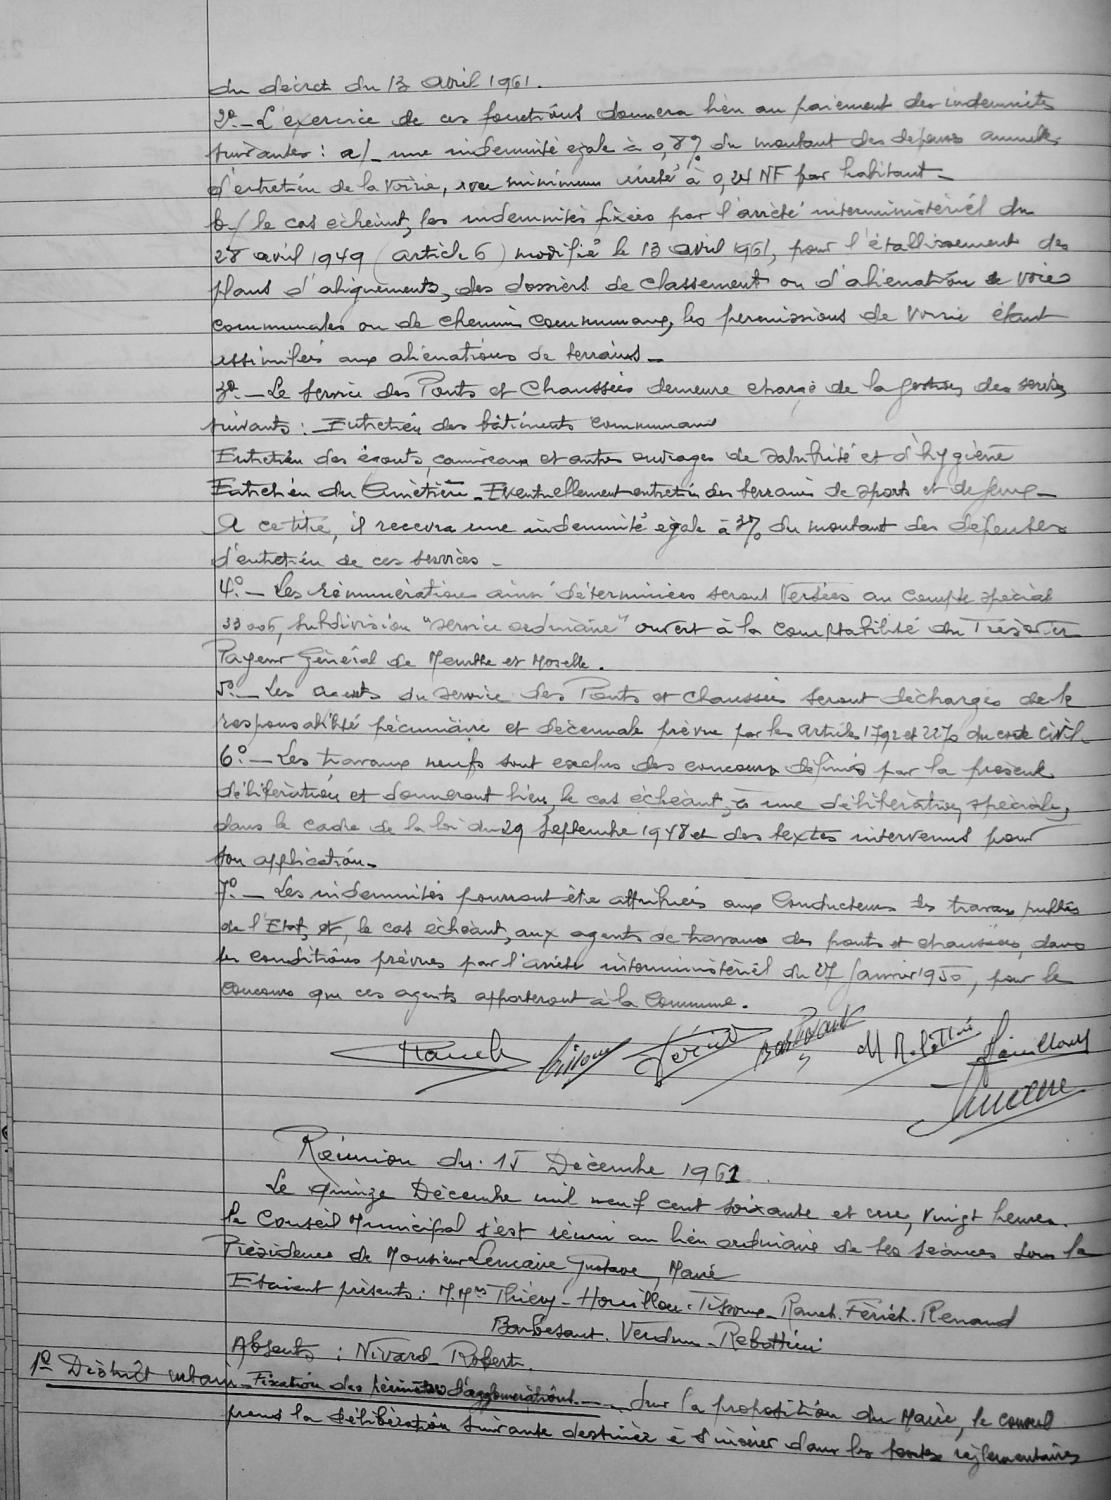 du décret du 13 avril 1961.
2º_ L'exercice de ces fonctions donnera lieu au paiement des indemnités
suivantes : a/_ une indemnité égale à 0,8% du montant des dépenses annuelles
d'entretien de la voirie, avec minimum unité à 0,24 NF par habitant_
b_/ le cas échéant, les indemnités fixées par l'arrêté interministériel du
28 avril 1949 (article 6) modifié le 13 avril 1961, pour l'établissement des
plans d'alignements, des dossiers de classement ou d'aliénation de voies
communales ou de chemin communaux, les permissions de voirie étant
assimilées aux aliénations de terrains_
3º_ Le Service des Ponts et Chaussées demeure chargé de la gestion des services
suivants : _ Entretien des bâtiments communaux
Entretien des égouts, caniveaux et autres ouvrages de salubrité et d'hygiène
Entretien du Cimetière_ Eventuellement entretien des terrains de sports et de jeux_
A ce titre, il recevra une indemnité égale à 3% du montant des dépenses
d'entretien de ces services_
4º_ Les rémunérations ainsi déterminées seront versées au compte spécial
33006, subdivision "service ordinaire" ouvert à la comptabilité du Trésorier
Payeur Général de Meurthe et Moselle.
5º_ Les agents du service des Ponts et Chaussées seront déchargés de la
responsabilité pécuniaire et décennale prévue par les articles 1792 et 2270 du code civil.
6º_ Les travaux neufs sont exclus des concours définis par la présente
délibération et donneront lieu, le cas échéant, à une délibération spéciale,
dans le cadre de la loi du 29 Septembre 1948 et des textes intervenus pour
son application_
7º_ Les indemnités pourront être attribuées aux Conducteurs des travaux publics
de l'Etat, et, le cas échéant, aux agents de travaux des ponts et chaussées, dans
les conditions prévues par l'arrêté interministériel du 27 Janvier 1950, pour le
concours que ces agents apporteront à la Commune.
Réunion du 15 Décembre 1961
Le quinze Décembre mil neuf cent soixante et une, vingt heures.
le Conseil Municipal s'est réuni au lieu ordinaire de ses séances sous la
Présidence de Monsieur Lemaire Gustave, Maire
Etaient présents : M.Mrs Thiéry_ Houillon. Tissoux_ Rauch. Fériet. Renaud
Barbesant. Verdun_ Rebottini
Absents : Nivard_ Robert.
1º District urbain_ Fixation des périmètres d'agglomérations_ _ Sur la proposition du Maire, le conseil
prend la délibération suivante destinée à s'insérer dans les textes réglementaires